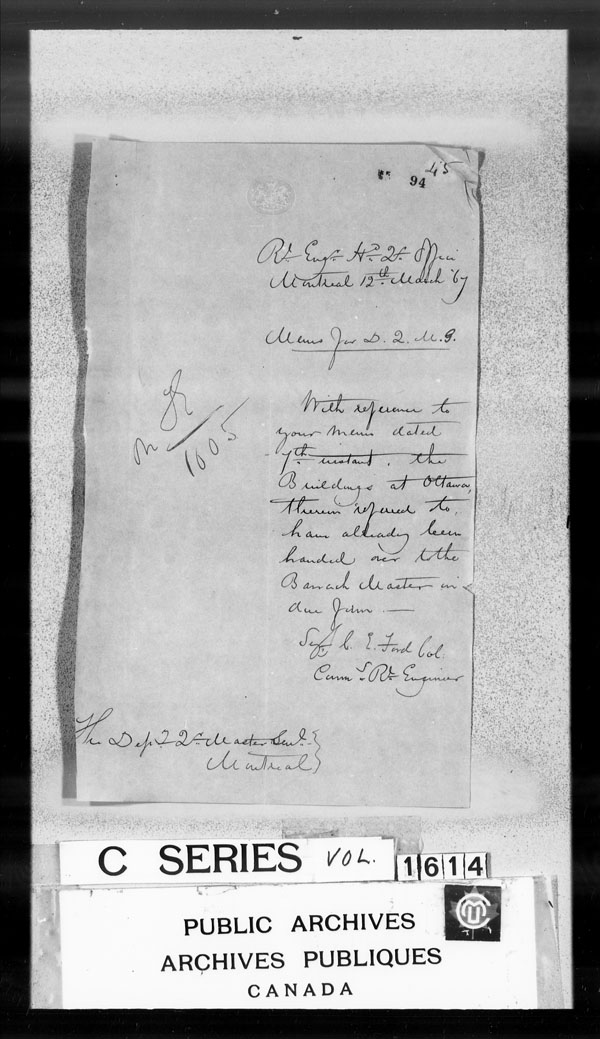 45
94
Rl Engr Hd Qr Office
Montreal 12th March '67
Memo for D. Q. M. G.
R
M 1605
With reference to
your memo dated
7th instant, the
Buildings at Ottawa,
therein referred to,
have already been
handed over to the
Barrack Master in
due form —
Sigd C. E. Ford Col.
Comg Rl Engineer
The Depy Qr Master Genl.
Montreal
C SERIES VOL. 1614
PUBLIC ARCHIVES
ARCHIVES PUBLIQUES
CANADA